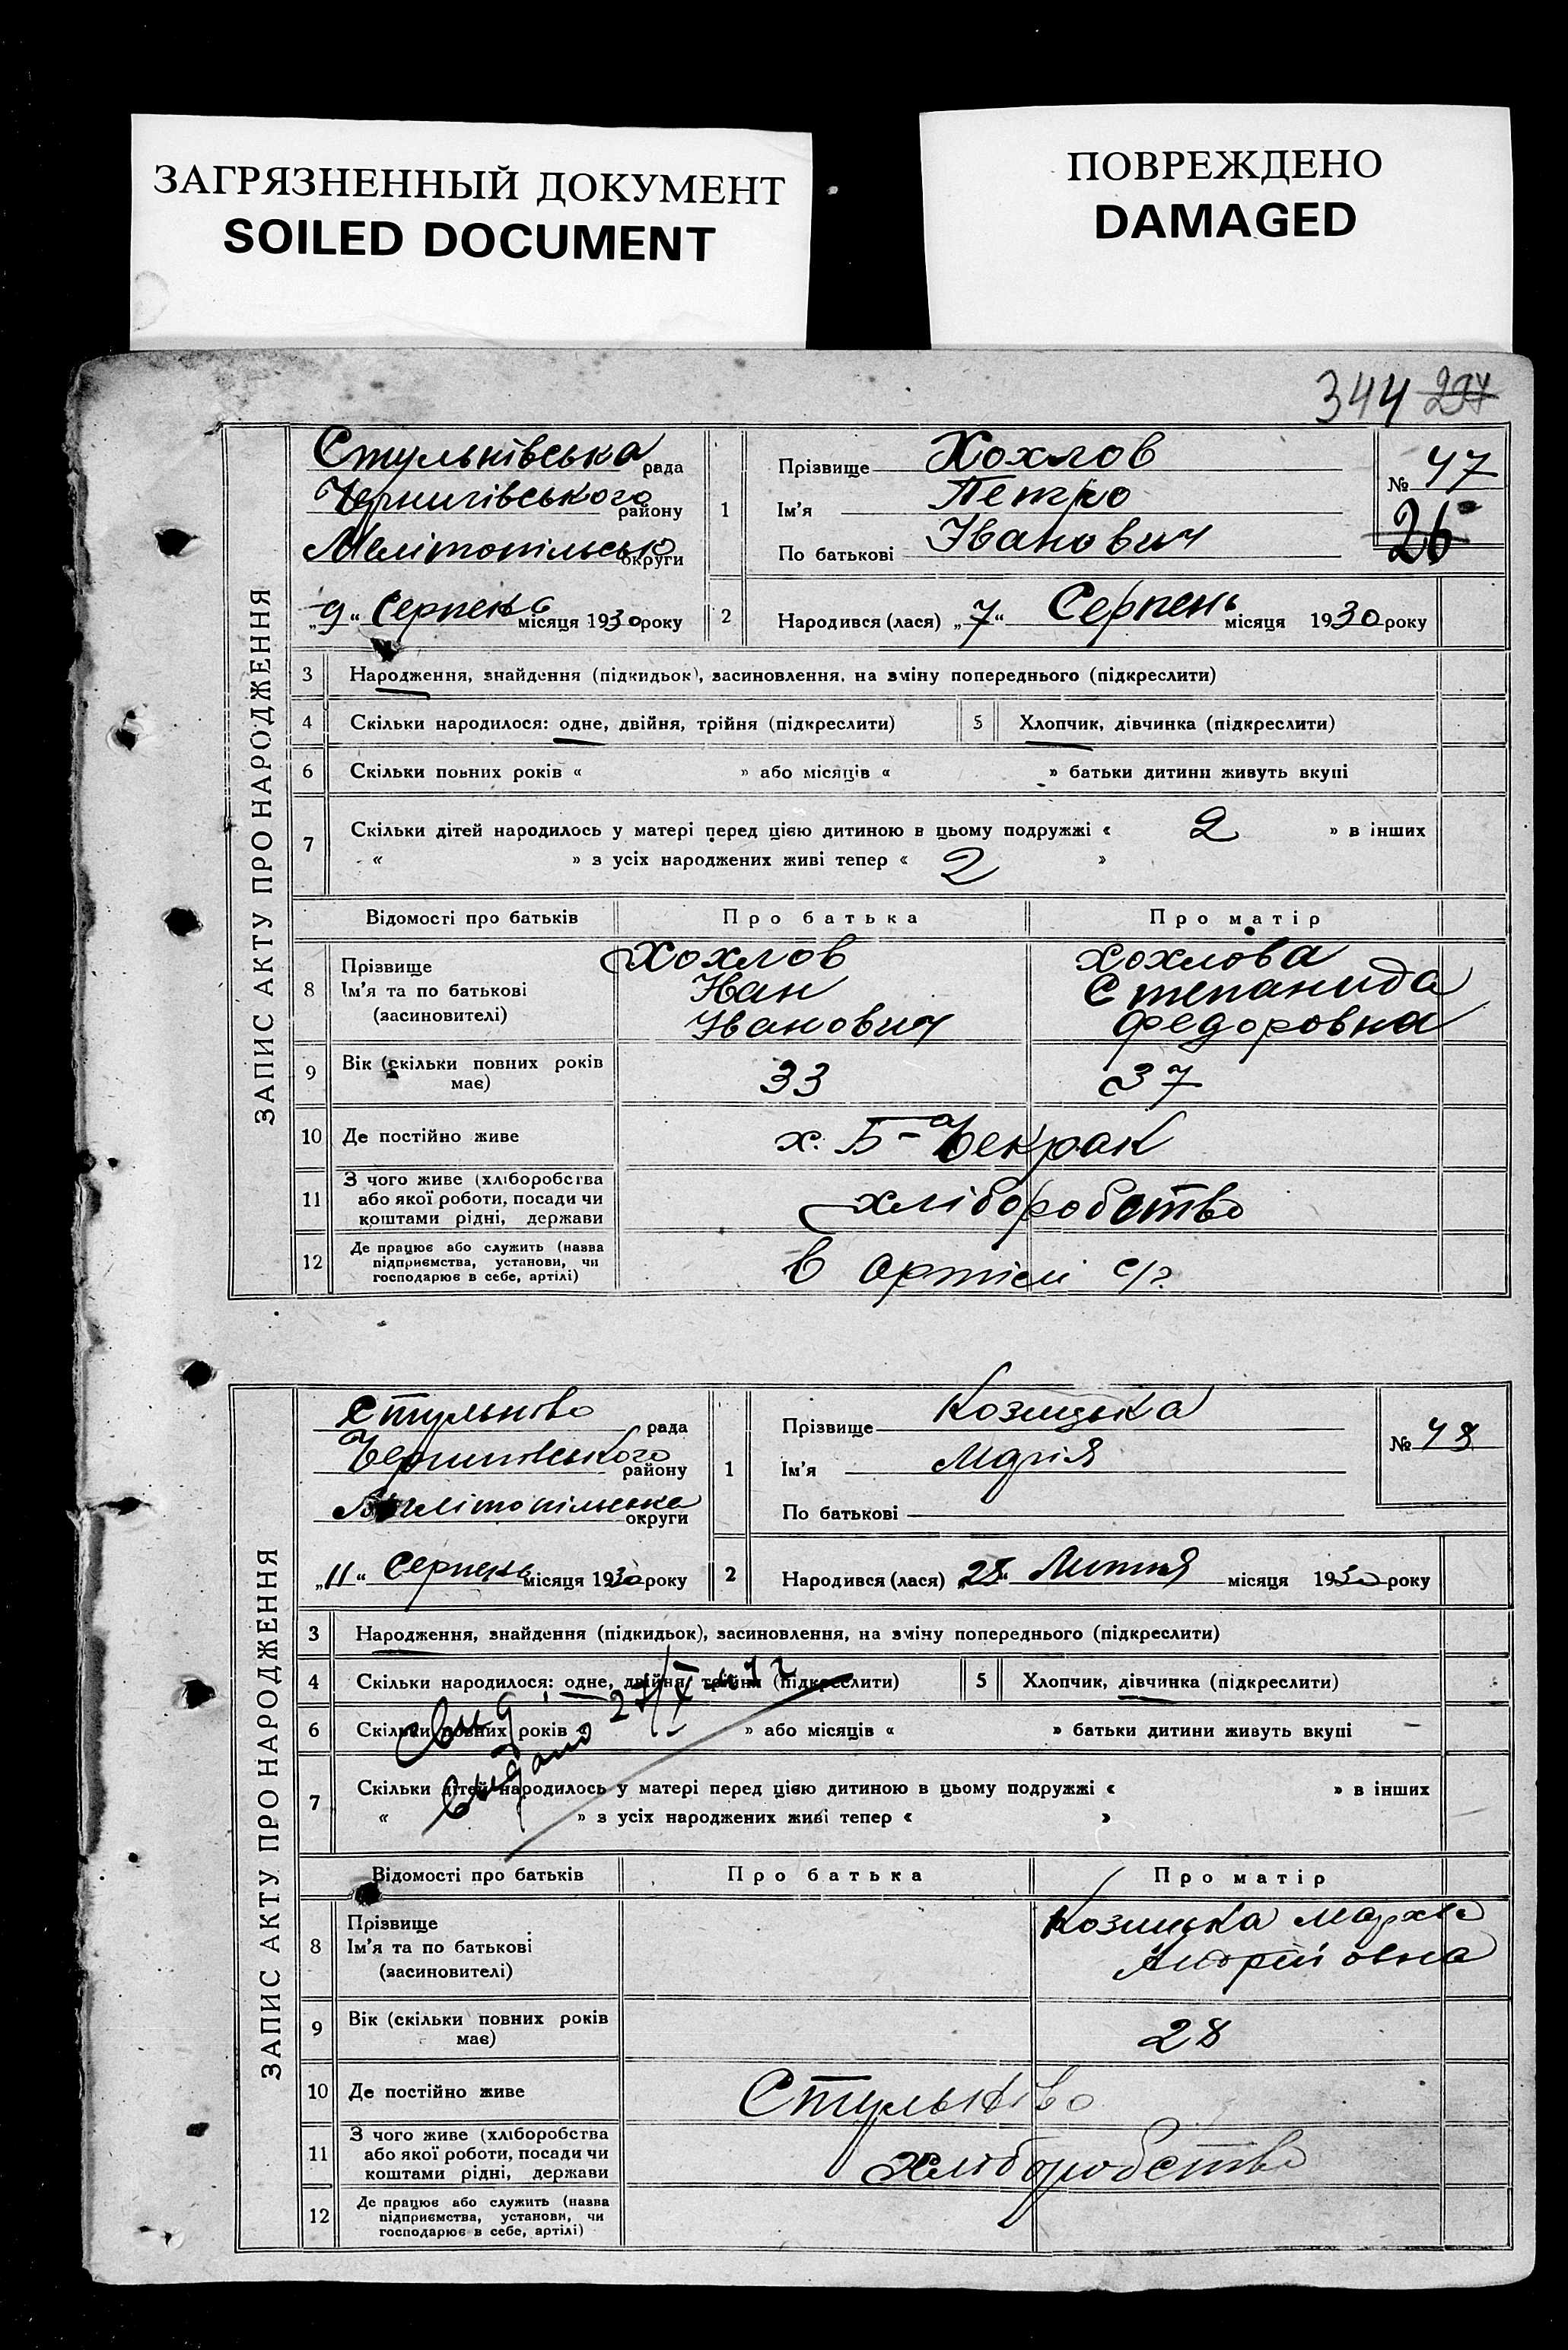 ЗАГРЯЗНЕННЫЙ ДОКУМЕНТ
SOILED DOCUMENT
ПОВРЕЖДЕНО
DAMAGED
344 237
ЗАПИС АКТУ ПРО НАРОДЖЕННЯ
Стульнівська рада
Чернигівського району
Мелітопільсько округи
„9“ Серпень місяця 1930 року
1 Прізвище Хохлов
Ім'я Петро
По батькові Іванович
№ 47
26
2 Народився (лася) „7“ Серпень місяця 1930 року
3 Народження, знайдення (підкидьок), засиновлення, на зміну попереднього (підкреслити)
4 Скільки народилося: одне, двійня, трійня (підкреслити) 5 Хлопчик, дівчинка (підкреслити)
6 Скільки повних років « » або місяців « » батьки дитини живуть вкупі
7 Скільки дітей народилось у матері перед цією дитиною в цьому подружжі « 2 » в інших
« » з усіх народжених живі тепер « 2 »
Відомості про батьків Про батька Про матір
8 Прізвище Хохлов Хохлова
Ім'я та по батькові Иван Степанида
(засиновителі) Іванович Федоровна
9 Вік (скільки повних років має) 33 37
10 Де постійно живе х. Б-Чекрак
11 З чого живе (хліборобства
або якої роботи, посади чи
коштами рідні, держави хліборобство
12 Де працює або служить (назва
підприємства, установи, чи
господарює в себе, артілі) в артілі с/г.
ЗАПИС АКТУ ПРО НАРОДЖЕННЯ
Стульніво рада
Чернигівського району
Мелітопільська округи
„11“ Серпень місяця 1930 року
1 Прізвище Козицька
Ім'я Марія
По батькові
№ 48
2 Народився (лася) „28“ Лютня місяця 1930 року
3 Народження, знайдення (підкидьок), засиновлення, на зміну попереднього (підкреслити)
4 Скільки народилося: одне, двійня, трійня (підкреслити) 5 Хлопчик, дівчинка (підкреслити)
6 Скільки повних років « » або місяців « » батьки дитини живуть вкупі
7 Скільки дітей народилось у матері перед цією дитиною в цьому подружжі « » в інших
« » з усіх народжених живі тепер « »
выдано
Відомості про батьків Про батька Про матір
8 Прізвище Козицька
Ім'я та по батькові Андрійовна
(засиновителі)
9 Вік (скільки повних років має) 28
10 Де постійно живе Стульніво
11 З чого живе (хліборобства
або якої роботи, посади чи
коштами рідні, держави Хліборобство
12 Де працює або служить (назва
підприємства, установи, чи
господарює в себе, артілі)